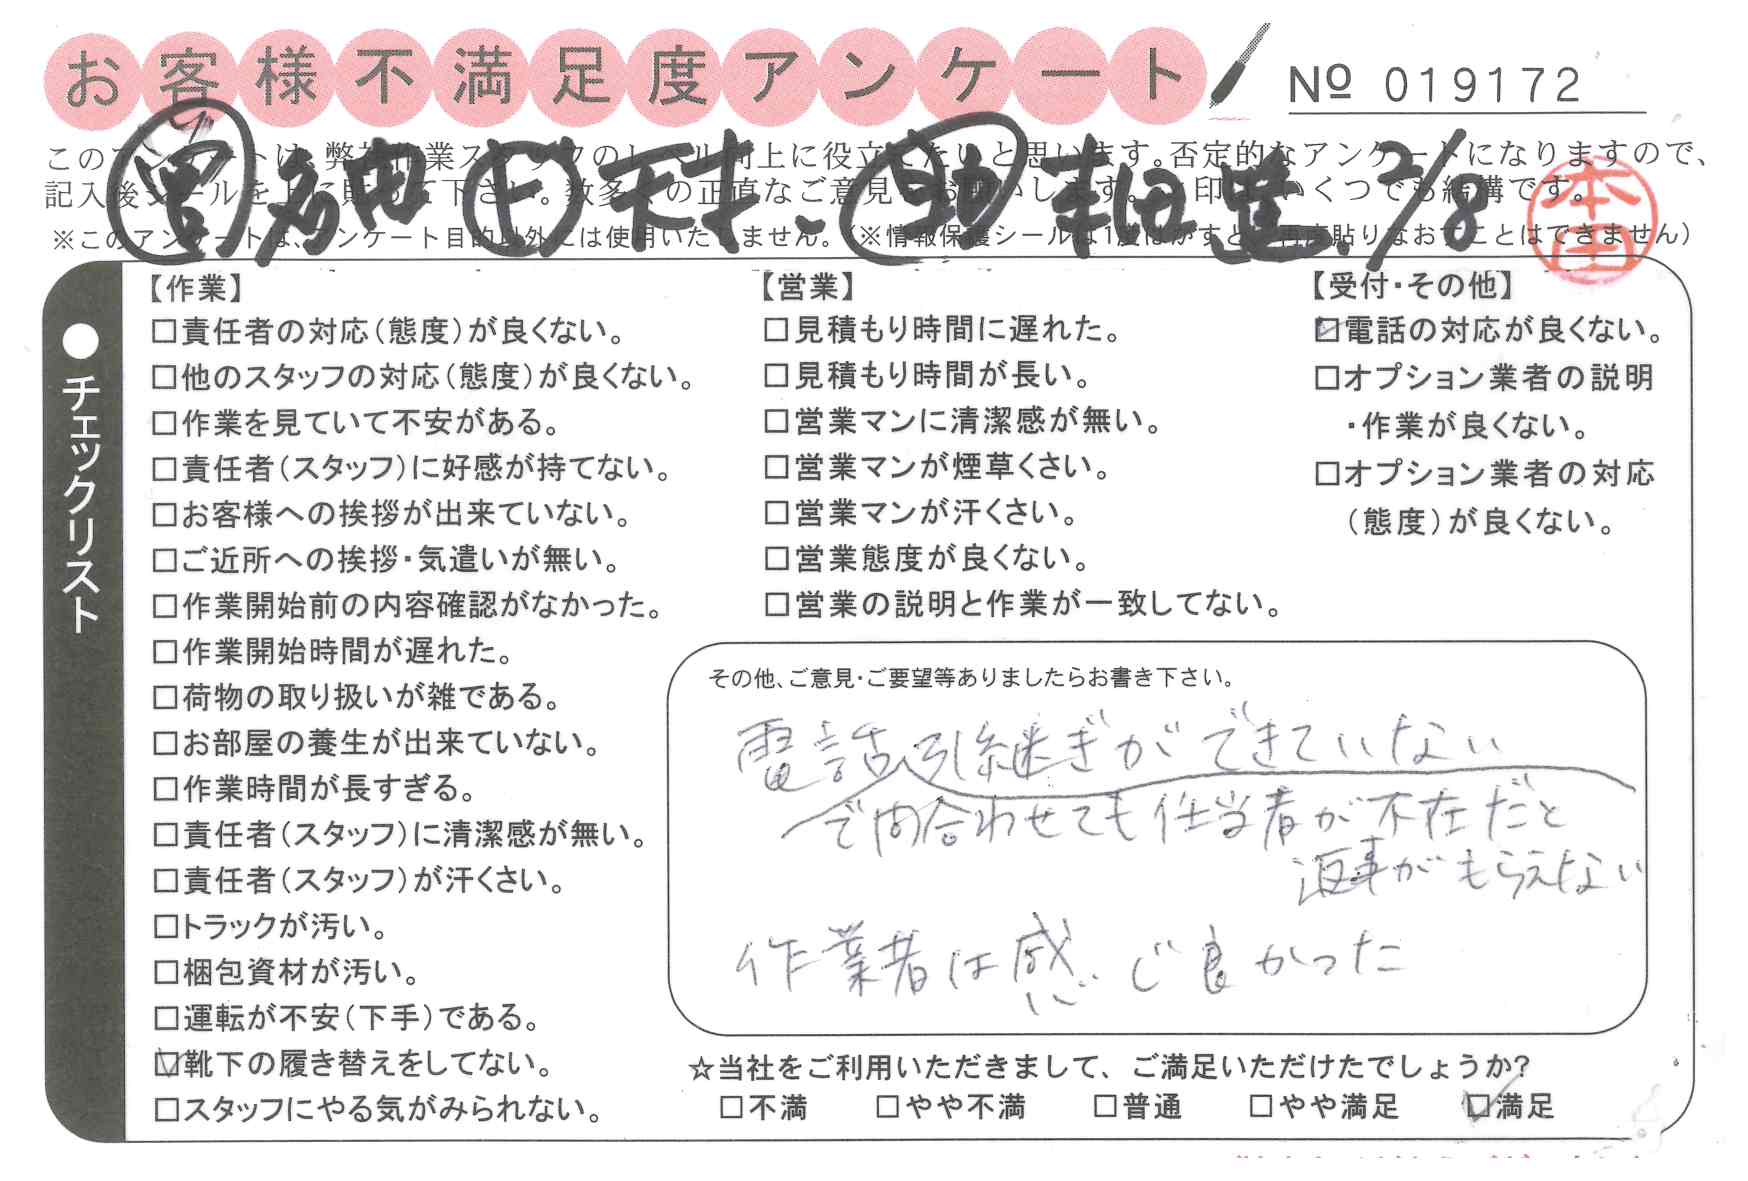 お客様不満足度アンケート
№ 019172
このアンケートは、弊社作業スタッフのレベル向上に役立てたいと思います。否定的なアンケートになりますので、
記入後シールを上に貼って下さい。数多くの正直なご意見をお願いします。印はいくつでも結構です。
※このアンケートは、アンケート目的以外には使用いたしません。(※情報保護シールは1度はがすと、再度貼りなおすことはできません)
2/8
本田
●チェックリスト
【作業】
□責任者の対応(態度)が良くない。
□他のスタッフの対応(態度)が良くない。
□作業を見ていて不安がある。
□責任者(スタッフ)に好感が持てない。
□お客様への挨拶が出来ていない。
□ご近所への挨拶・気遣いが無い。
□作業開始前の内容確認がなかった。
□作業開始時間が遅れた。
□荷物の取り扱いが雑である。
□お部屋の養生が出来ていない。
□作業時間が長すぎる。
□責任者(スタッフ)に清潔感が無い。
□責任者(スタッフ)が汗くさい。
□トラックが汚い。
□梱包資材が汚い。
□運転が不安(下手)である。
☑靴下の履き替えをしてない。
□スタッフにやる気がみられない。
【営業】
□見積もり時間に遅れた。
□見積もり時間が長い。
□営業マンに清潔感が無い。
□営業マンが煙草くさい。
□営業マンが汗くさい。
□営業態度が良くない。
□営業の説明と作業が一致してない。
【受付・その他】
☑電話の対応が良くない。
□オプション業者の説明
・作業が良くない。
□オプション業者の対応
(態度)が良くない。
その他、ご意見・ご要望等ありましたらお書き下さい。
電話引継ぎができていない
で問合わせても担当者が不在だと
返事がもらえない
作業者は感じ良かった
☆当社をご利用いただきまして、ご満足いただけたでしょうか?
□不満 □やや不満 □普通 □やや満足 ☑満足